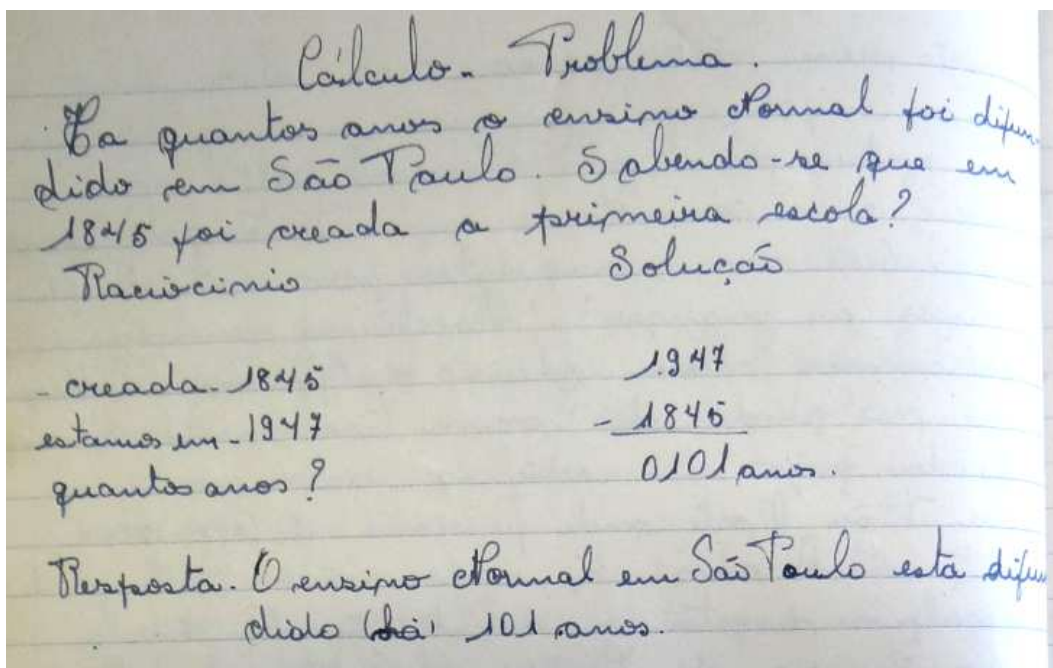 Cálculo - Problema.
Ha quantos anos o ensino Normal foi difun
dido em São Paulo. Sabendo-se que em
1845 foi creada a primeira escola?
Raciocinio Solução
- creada - 1845 1.947
estamos em - 1947 - 1845
quantos anos? 0101 anos.
Resposta. O ensino Normal em São Paulo esta difun
dido (há) 101 anos.